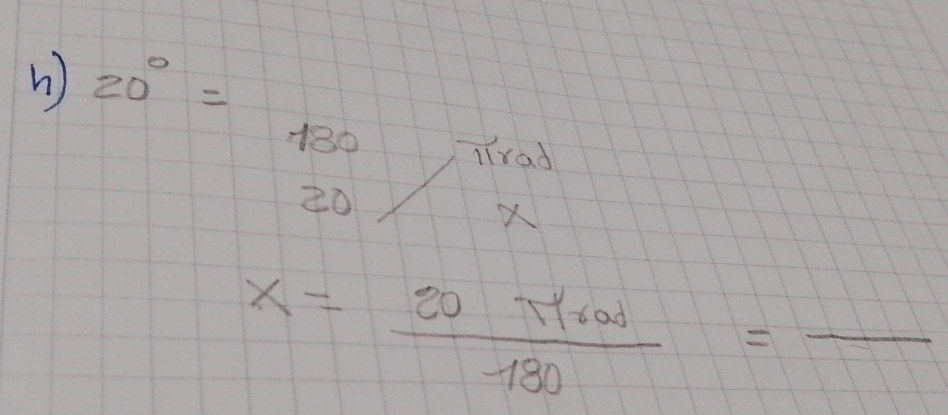 h) 20° =
180 πrad
20 x
x = 20 πrad =
180